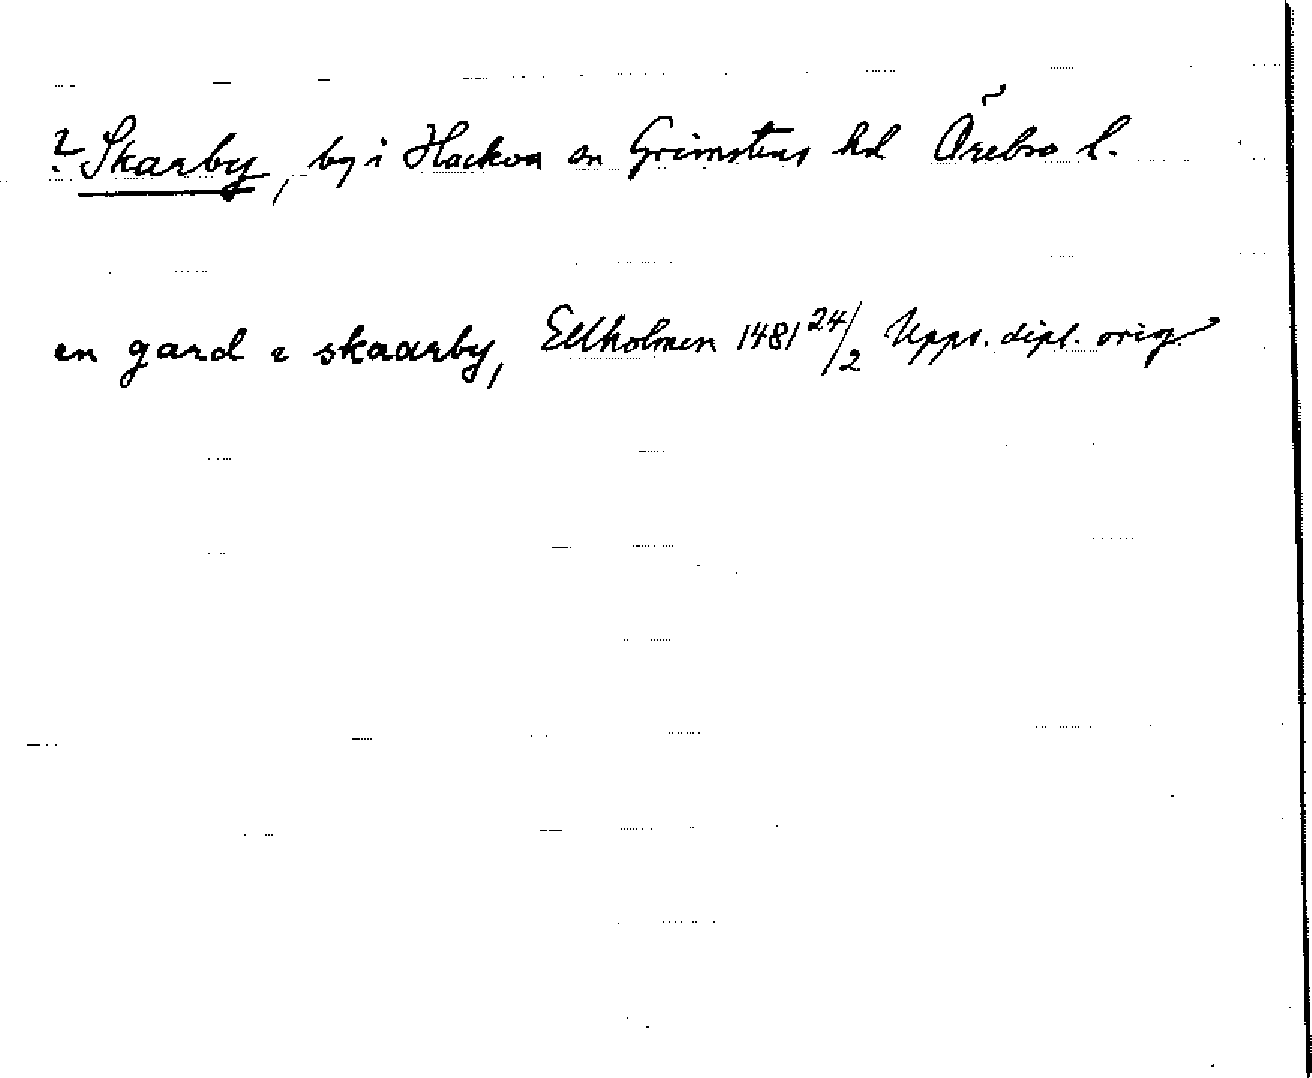 ? Skarby, by i Hackva sn Grimstens hd Örebro l.
en gard i skaarby, Ellholmen 1481 24/2 Upps. dipl. orig.